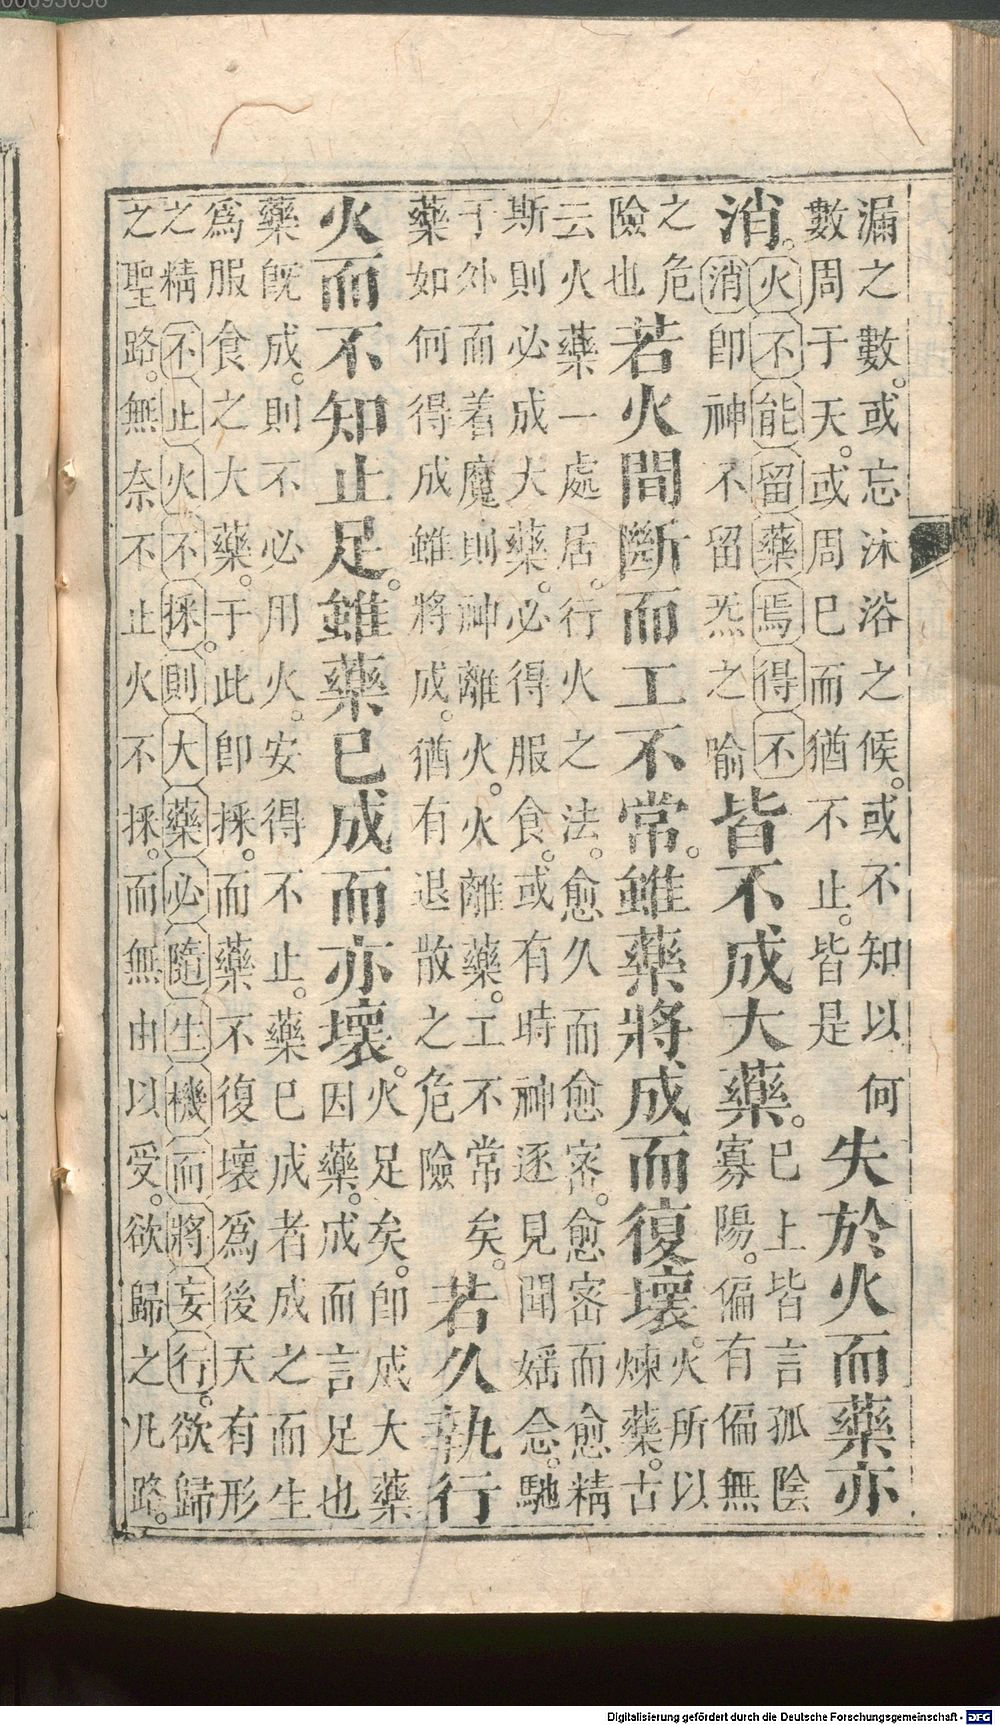 漏之數。或忘沐浴之候。或不知以何
數周于天。或周已而猶不止。皆是
失於火而藥亦
消。
火不能留藥焉得不
消即神不留炁之喻
皆不成大藥。
已上皆言孤陰
寡陽。偏有偏無
之危
險也
若火間斷而工不常。雖藥將成而復壞。
火所以
煉藥。古
云火藥一處居。行火之法。愈久而愈密。愈密而愈精
斯則必成大藥。必得服食。或有時神逐見聞婬念。馳
于外而着魔則神離火。火離藥。工不常矣。
藥如何得成雖將成。猶有退散之危險
若久執行
火而不知止足。雖藥已成而亦壞。
火足矣。即成大藥
因藥。成而言足也
藥既成。則不必用火。安得不止。藥已成者成之而生
爲服食之大藥。于此即採。而藥不復壞爲後天有形
之精不止火不採。則大藥必隨生機而將妄行。欲歸
之聖路。無奈不止火不採。而無由以受。欲歸之凡路。
Digitalisierung gefördert durch die Deutsche Forschungsgemeinschaft - DFG